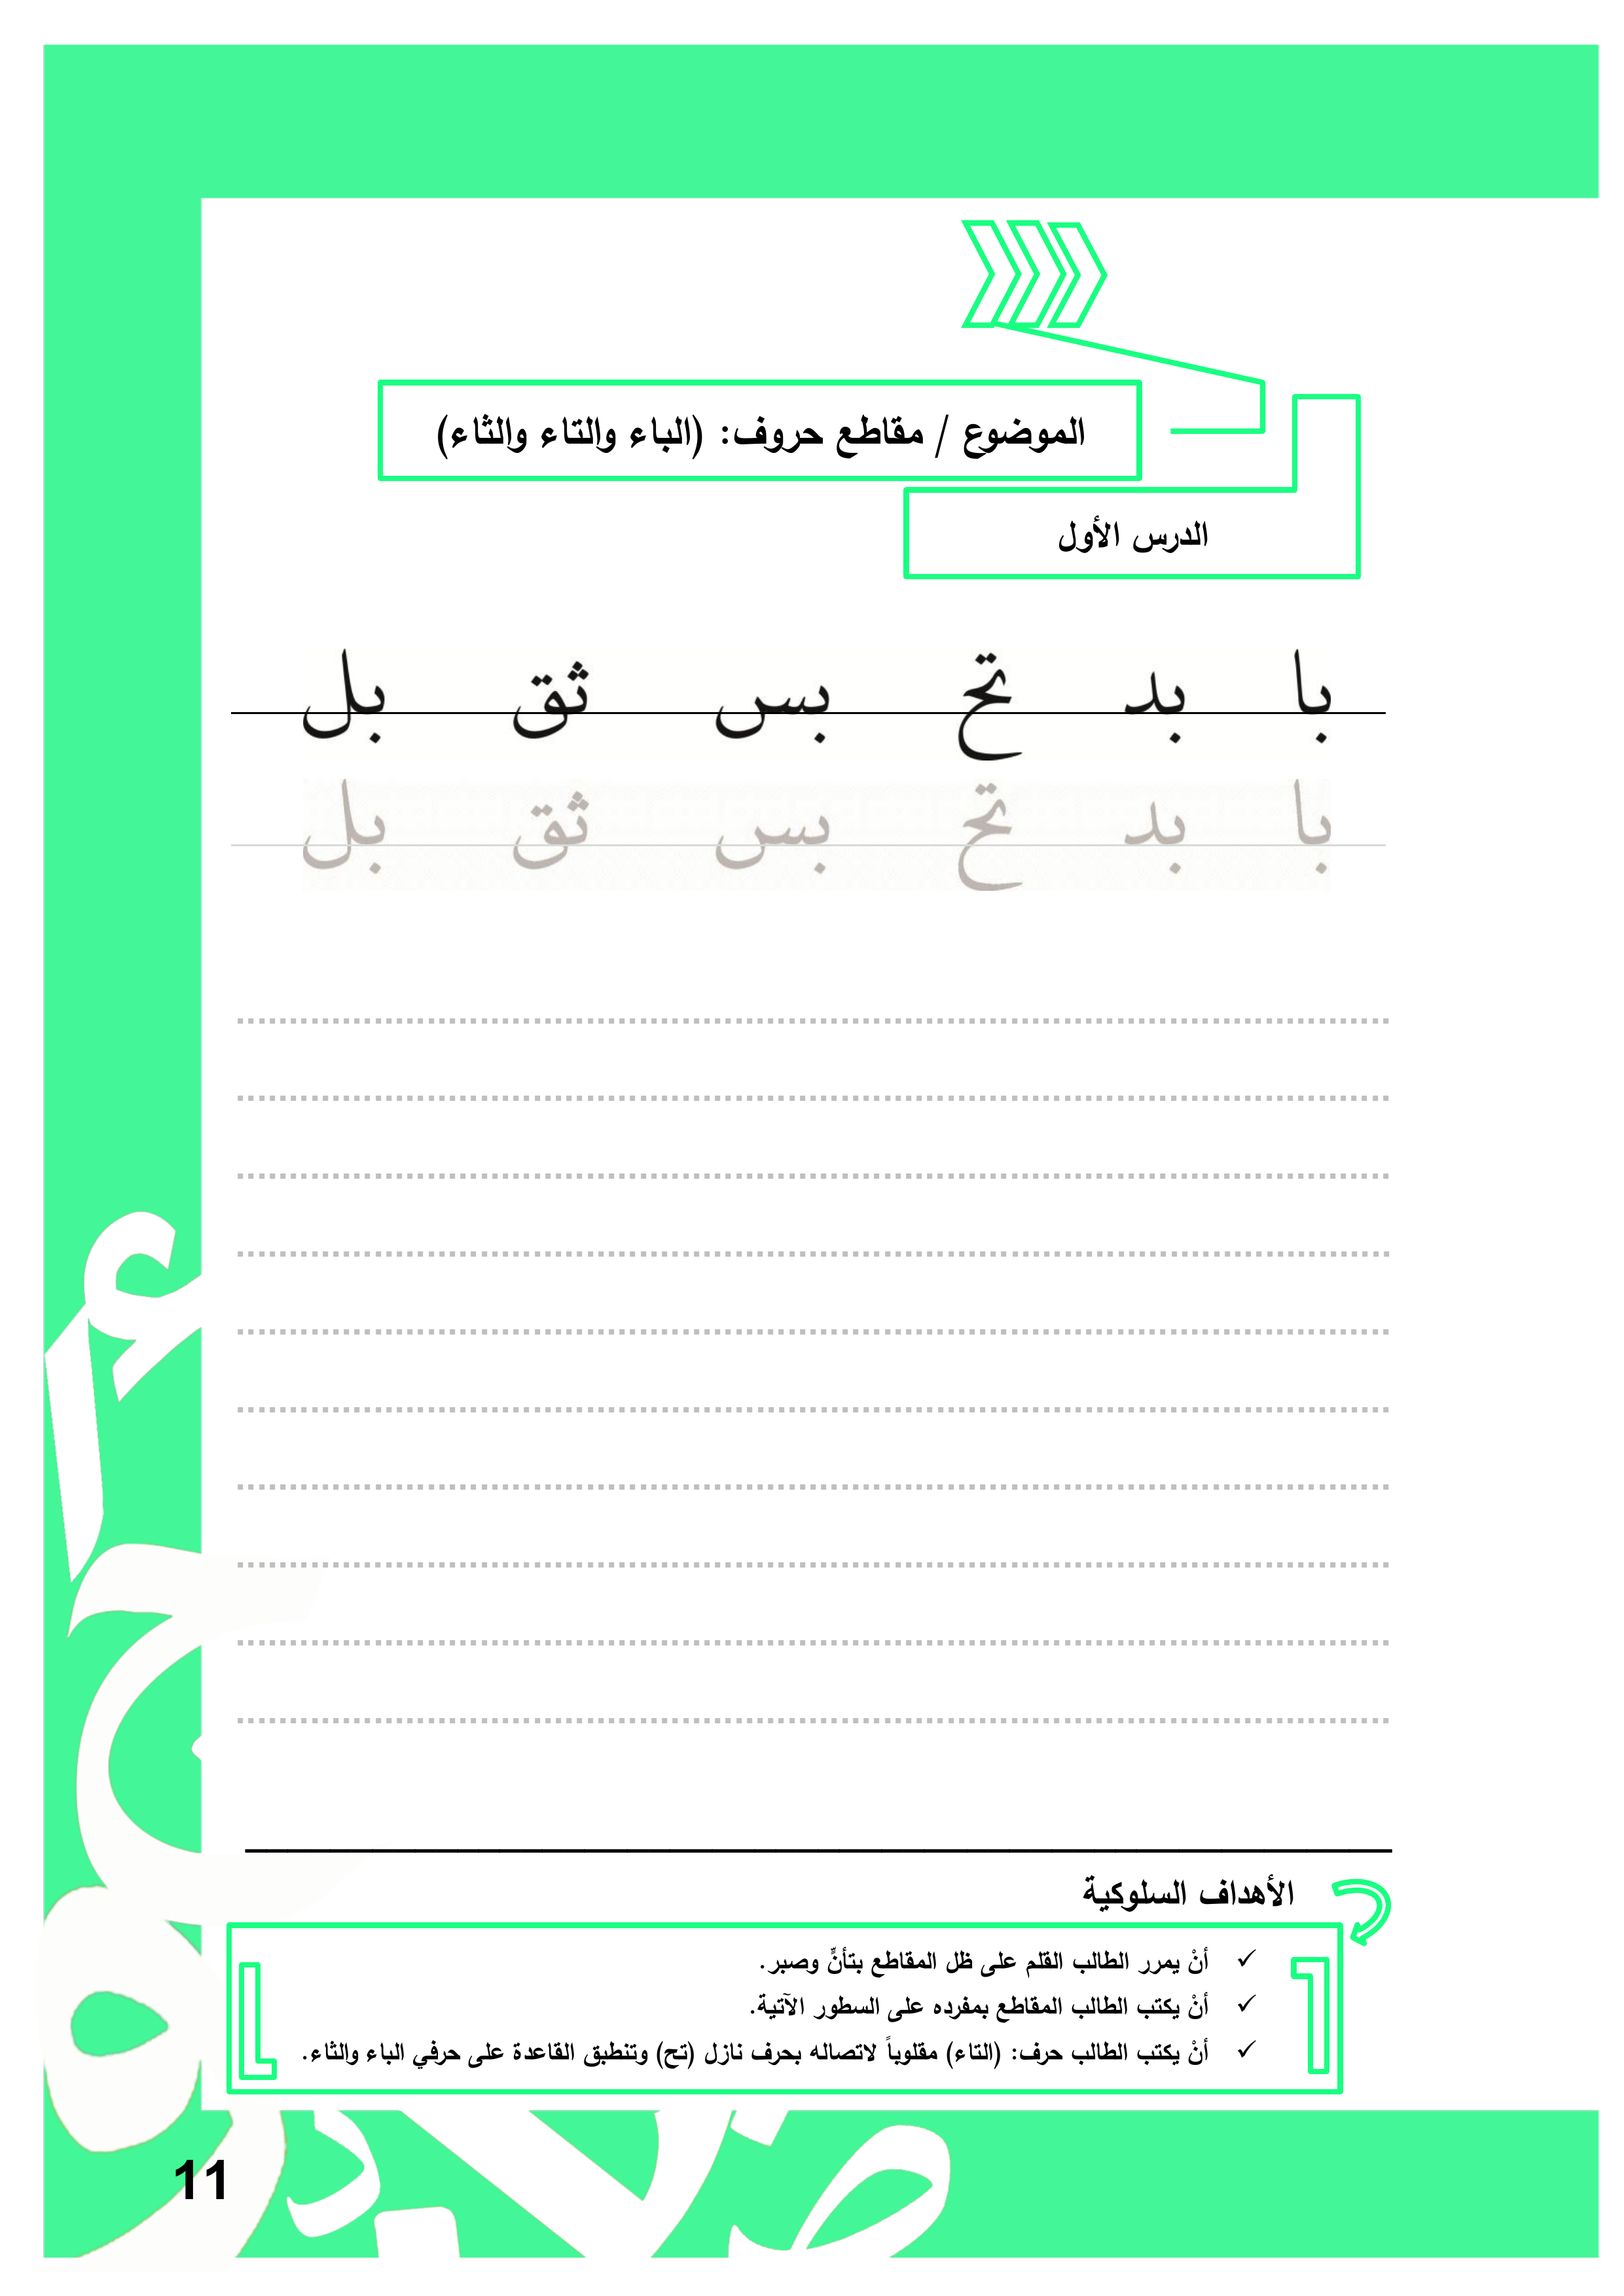 الموضوع / مقاطع حروف: (الباء والتاء والثاء)
الدرس الأول
با بد تح بس ثق بل
با بد تح بس ثق بل
الأهداف السلوكية
✓ أنْ يمرر الطالب القلم على ظل المقاطع بتأنٍّ وصبر.
✓ أنْ يكتب الطالب المقاطع بمفرده على السطور الآتية.
✓ أنْ يكتب الطالب حرف: (التاء) مقلوباً لاتصاله بحرف نازل (تح) وتنطبق القاعدة على حرفي الباء والثاء.
11